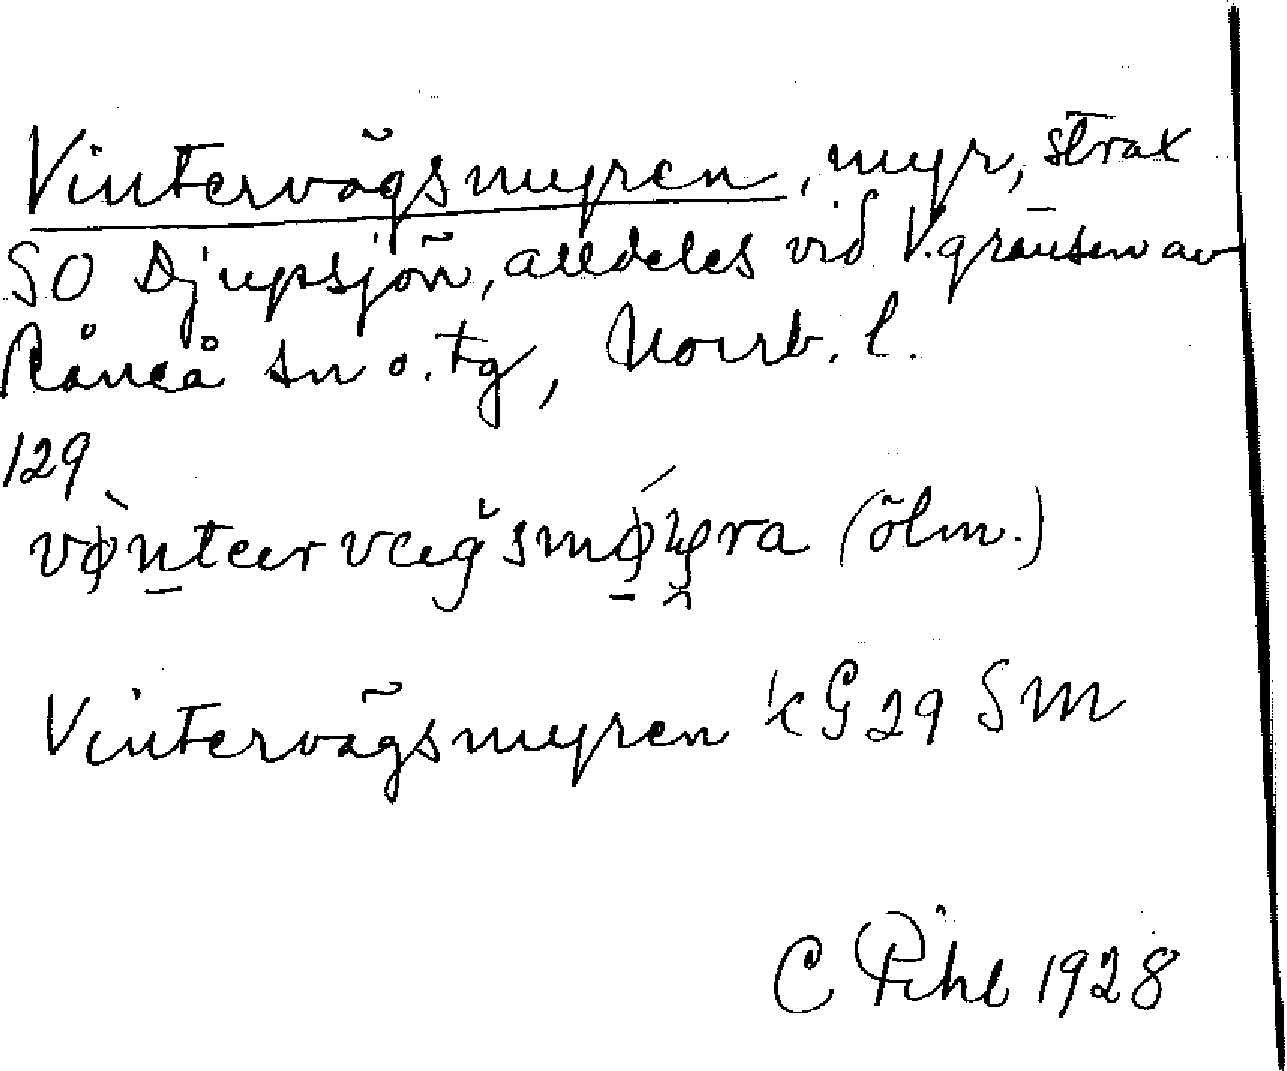 Vintervägsmyren, myr, strax
SO Djupsjön, alldeles vid V.gränsen av
Råneå sn o. tg, Norrb. l.
129
(ölm.)
Vintervägsmyren kG 29 SM
C Pihl 1928